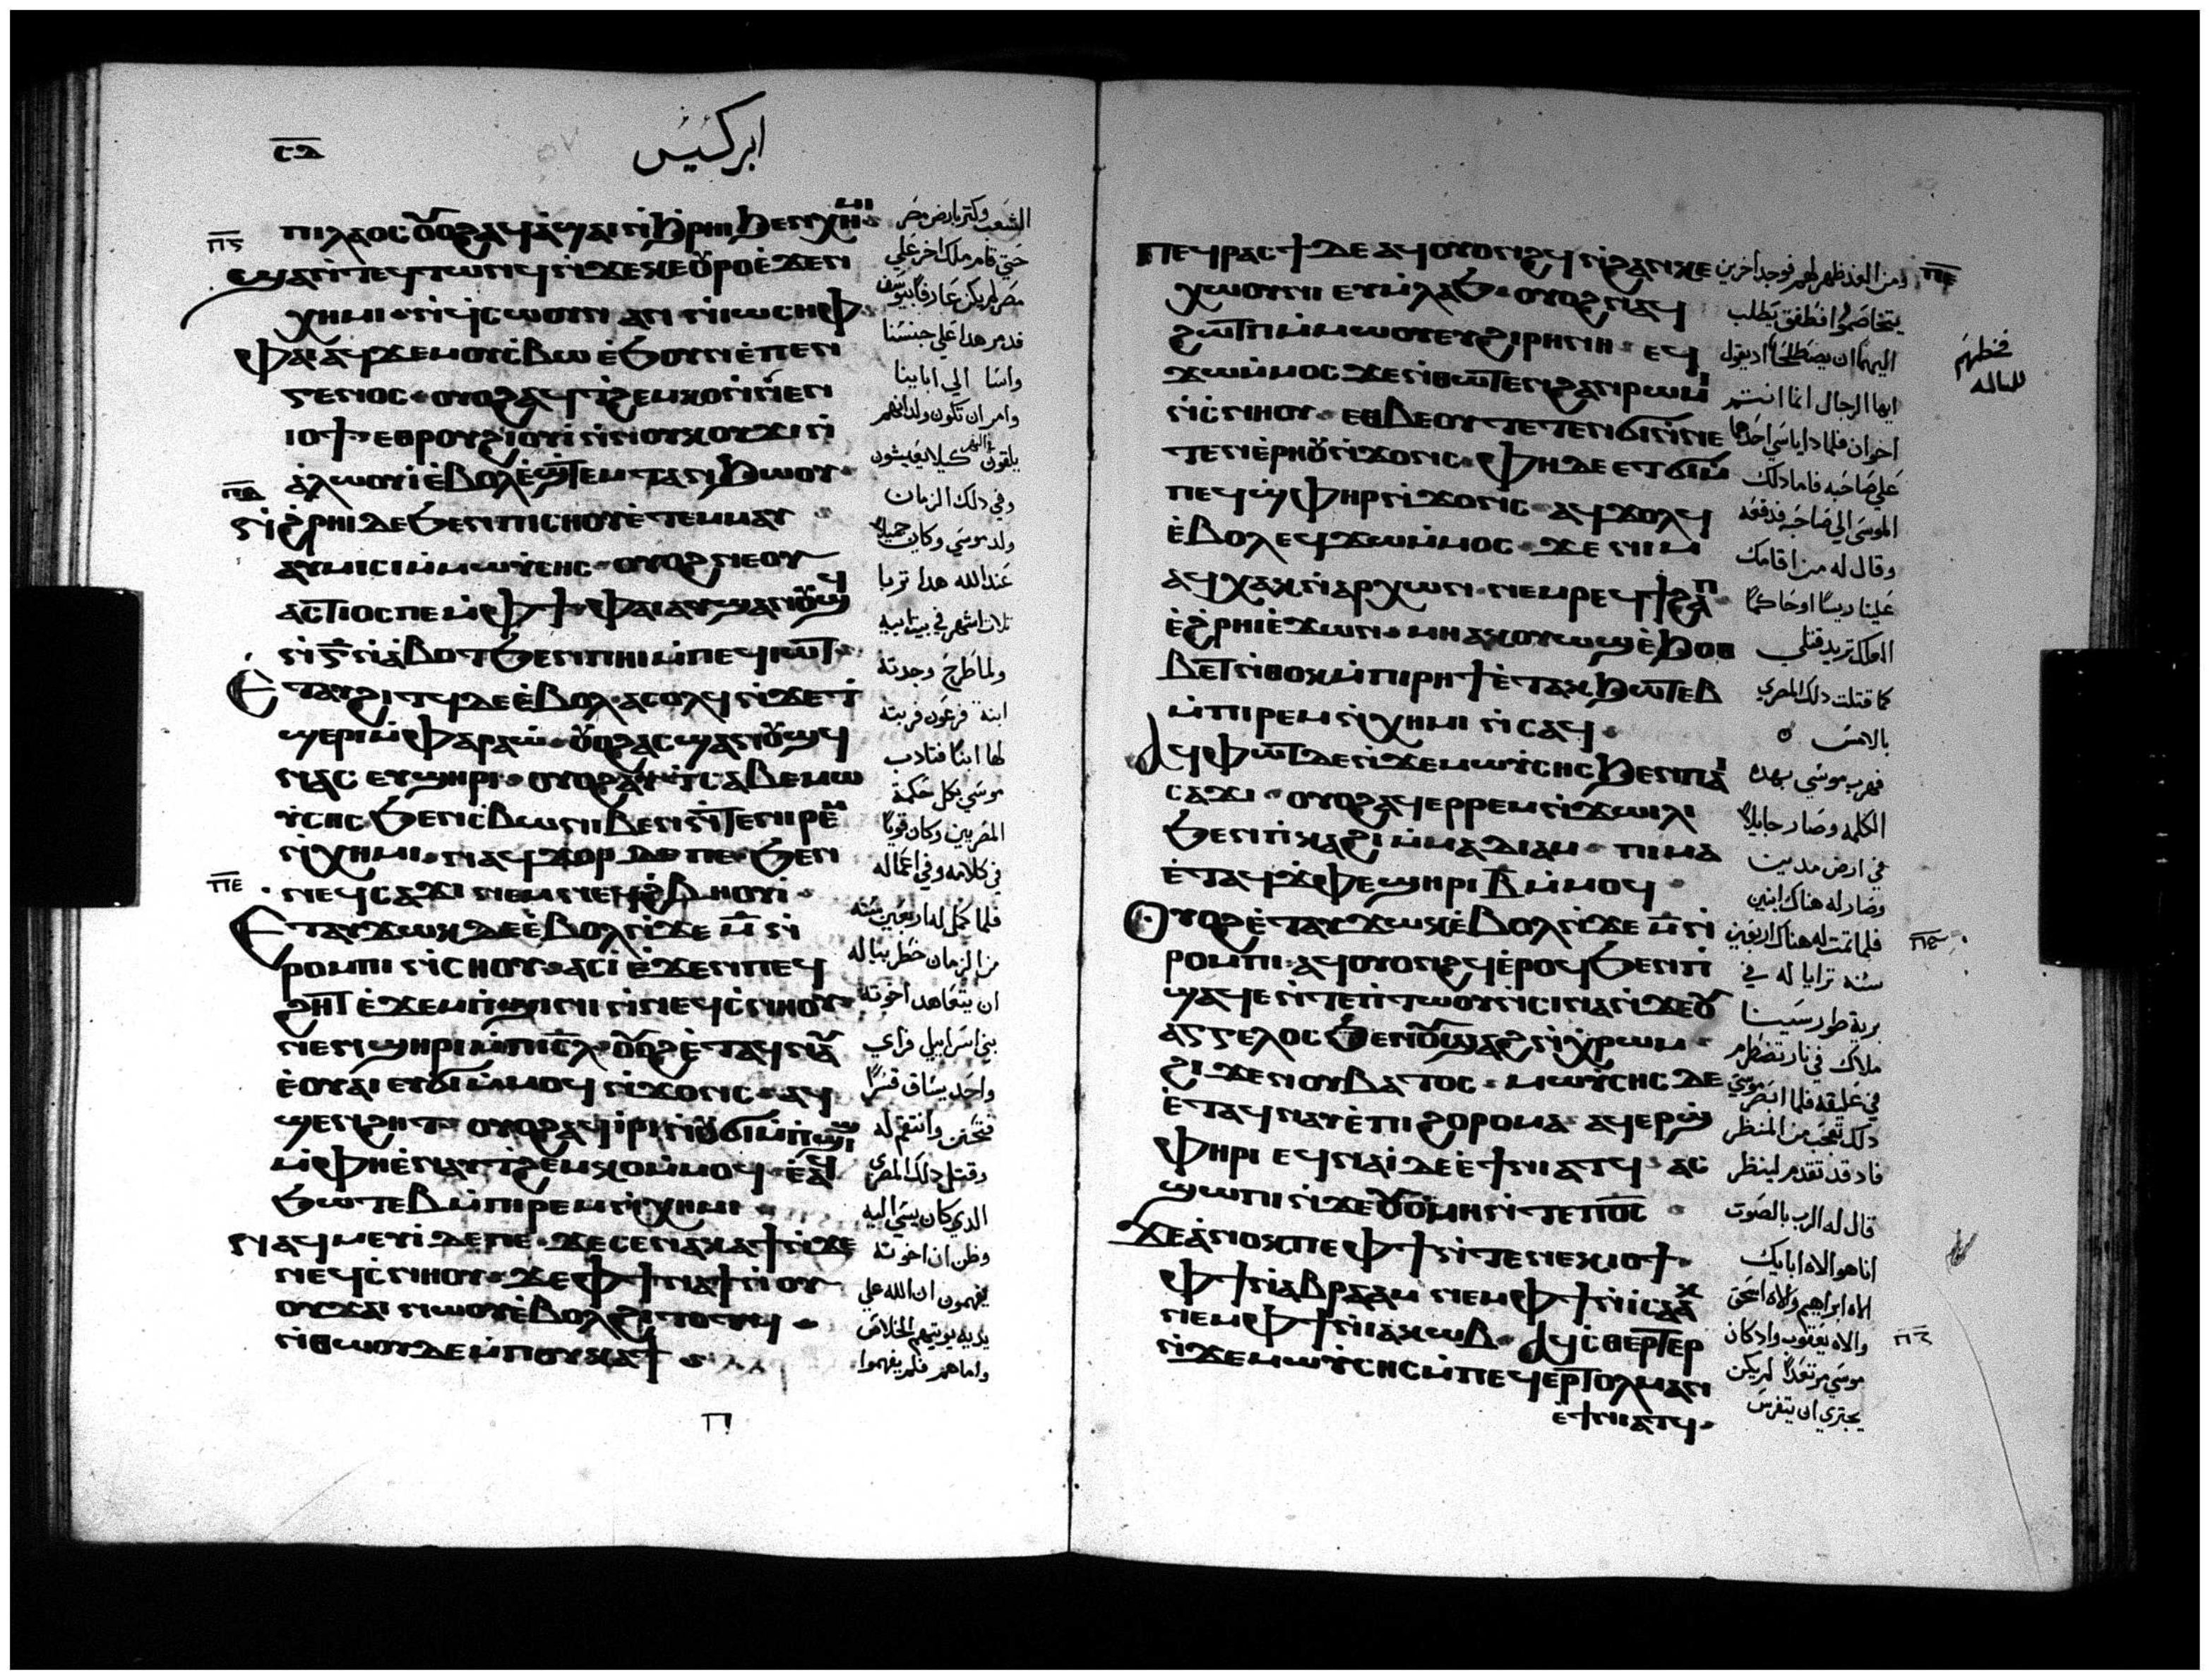 ⲥⲇ
ابركسيس
ⲡⲓⲗⲁⲟⲥ ⲟⲩⲟϩ ⲁϥⲁ̀ϣⲁⲓ ⲛ̀ϧ̀ⲣⲏⲓ ϧⲉⲛ ⲭⲏⲙⲓ
ϣⲁⲛ̀ⲧⲉϥⲧⲱⲛϥ ⲛ̀ϫⲉⲕⲉⲟⲩⲣⲟ ⲉ̀ϫⲉⲛ
ⲭⲏⲙⲓ ⲛ̀ϥ̀ⲥⲱⲟⲩⲛ ⲁⲛ ⲛ̀ⲓⲱⲥⲏⲫ
ⲫⲁⲓ ⲁϥϫⲉⲙⲟⲩⲥ̀ⲃⲱ ⲉ̀ϧⲟⲩⲛ ⲉ̀ⲡⲉⲛ
ⲅⲉⲛⲟⲥ ⲟⲩⲟϩ ⲁϥⲧ̀ϩⲉⲙⲕⲟ ⲛ̀ⲛⲉⲛ
ⲓⲟϯ ⲉⲑⲣⲟⲩϩⲓⲟⲩⲓ̀ ⲛ̀ⲛⲟⲩⲕⲟⲩϫⲓ ⲛ̀
ⲁ̀ⲗⲱⲟⲩⲓ̀ ⲉ̀ⲃⲟⲗ ⲉ̀ϣⲧⲉⲙⲧⲁⲛϧⲱⲟⲩ
ⲛ̀ϩ̀ⲣⲏⲓ ⲇⲉ ϧⲉⲛ ⲡⲓⲥⲏⲟⲩ ⲉ̀ⲧⲉⲙⲙⲁⲩ
ⲁⲩⲙⲓⲥⲓ ⲙ̀ⲙⲱⲩ̀ⲥⲏⲥ ⲟⲩⲟϩ ⲛⲉⲟⲩ
ⲁⲥⲧⲓⲟⲥ ⲡⲉ ⲙ̀ⲫϯ ⲫⲁⲓ ⲁⲩϣⲁⲛⲟⲩϣϥ
ⲛ̀ⲅ̅ ⲛ̀ⲁ̀ⲃⲟⲧ ϧⲉⲛ ⲡⲏⲓ ⲙ̀ⲡⲉϥⲓⲱⲧ
ⲉ̀ⲧⲁⲩϩⲓⲧϥ ⲇⲉ ⲉ̀ⲃⲟⲗ ⲁⲥⲟⲗϥ ⲛ̀ϫⲉ ⲧ̀
ϣⲉⲣⲓ ⲙ̀ⲫⲁⲣⲁⲱ̀ ⲟⲩⲟϩ ⲁⲥϣⲁⲛⲟⲩϣϥ
ⲛⲁⲥ ⲉⲩϣⲏⲣⲓ ⲟⲩⲟϩ ⲁⲩⲧ̀ⲥⲁⲃⲉ ⲙⲱ
ⲩ̀ⲥⲏⲥ ϧⲉⲛ ⲥ̀ⲃⲱ ⲛⲓⲃⲉⲛ ⲛ̀ⲧⲉ ⲛⲓⲣⲉⲙ
ⲛ̀ⲭⲏⲙⲓ ⲛⲁϥϫⲟⲣ ⲇⲉ ⲡⲉ ϧⲉⲛ
ⲛⲉϥⲥⲁϫⲓ ⲛⲉⲙ ⲛⲉϥϩ̀ⲃⲏⲟⲩⲓ̀
ⲉⲧⲁⲩϫⲱⲕ ⲇⲉ ⲉ̀ⲃⲟⲗ ⲛ̀ϫⲉ ⲙ̅ ⲛ̀
ⲣⲟⲙⲡⲓ ⲛ̀ⲥⲏⲟⲩ ⲁⲥⲓ̀ ⲉ̀ϫⲉⲛ ⲡⲉϥ
ϩⲏⲧ ⲉ̀ϫⲉⲙⲡ̀ϣⲓⲛⲓ ⲛ̀ⲛⲉϥⲥ̀ⲛⲏⲟⲩ
ⲛⲉⲛϣⲏⲣⲓ ⲙ̀ⲡⲓⲥ̅ⲗ ⲟⲩⲟϩ ⲉ̀ⲧⲁϥⲛⲁⲩ
ⲉ̀ⲟⲩⲁⲓ ⲉⲩϭⲓ ⲙ̀ⲙⲟϥ ⲛ̀ϫⲟⲛⲥ ⲁϥ
ϣⲉⲛϩⲏⲧ ⲟⲩⲟϩ ⲁϥⲓ̀ⲣⲓ ⲛ̀ⲟⲩϭⲓⲙ̀ⲡ̀ϣⲓϣ
ⲙ̀ⲫⲏ ⲉ̀ⲛⲁⲩⲧ̀ϩⲉⲙⲕⲟ ⲙ̀ⲙⲟϥ ⲉ̀ⲁϥ
ϧⲱⲧⲉⲃ ⲙ̀ⲡⲓⲣⲉⲙⲛ̀ⲭⲏⲙⲓ
ⲛⲁϥⲙⲉⲩⲓ̀ ⲇⲉ ⲡⲉ ϫⲉ ⲥⲉⲛⲁⲕⲁϯ ⲛ̀ϫⲉ
ⲛⲉϥⲥ̀ⲛⲏⲟⲩ ϫⲉ ⲫϯ ⲛⲁϯ ⲛ̀ⲟⲩ
ⲟⲩϫⲁⲓ ⲛⲱⲟⲩ ⲉ̀ⲃⲟⲗ ϩⲓⲧⲟⲧϥ
ⲛ̀ⲑⲱⲟⲩ ⲇⲉ ⲙ̀ⲡⲟⲩⲕⲁϯ
الشعب وكتر بارض مصر
حتي قام ملك اخر علي
مصر لم يكن عارفا بيوسف
فدبر هدا علي جنسنا
واسا الي ابابنا
وامر ان تكون ولدانهم
يلقون كيلا يعيشون
وفي دلك الزمان
ولد موسي وكان جميلا
عند الله هدا تربا
تلات اشهر في بيت ابيه
ولما طرح وجدته
ابنة فرعون فربته
لها ابنا فتادب
موسي بكل حكمة
المصريين وكان قويا
في كلامه وفي اعماله
فلما كمل له اربعين سنه
من الزمان خطر بباله
ان يتعاهد اخوته
بني اسراييل فراي
واحد يساق قسرا
فتحنن وانتقم له
وقتل دلك المصري
الدي كان يسي اليه
وظن ان اخوته
يفهمون ان الله علي
يديه يوتيهم الخلاص
واما هم فلم يفهموا
ⲡⲉϥⲣⲁⲥϯ ⲇⲉ ⲁϥⲟⲩⲟⲛϩϥ ⲛ̀ϩⲁⲛⲕⲉ
ⲭⲱⲟⲩⲛⲓ ⲉⲩⲙⲗⲁϧ ⲟⲩⲟϩ ⲛⲁϥ
ϩⲱⲧⲡ ⲙ̀ⲙⲱⲟⲩ ⲉⲩϩⲓⲣⲏⲛⲏ ⲉϥ
ϫⲱ ⲙ̀ⲙⲟⲥ ϫⲉ ⲛ̀ⲑⲱⲧⲉⲛ ϩⲁⲛⲣⲱⲙⲓ
ⲛ̀ⲥ̀ⲛⲏⲟⲩ ⲉⲑⲃⲉⲟⲩ ⲧⲉⲧⲉⲛϭⲓ ⲛ̀ⲛⲉ
ⲧⲉⲛⲉ̀ⲣⲏⲟⲩ ⲛ̀ϫⲟⲛⲥ ⲫⲏ ⲇⲉ ⲉⲧϭⲓ ⲙ̀
ⲡⲉϥϣ̀ⲫⲏⲣ ⲛ̀ϫⲟⲛⲥ ⲁϥϫⲟⲗϥ
ⲉ̀ⲃⲟⲗ ⲉϥϫⲱ ⲙ̀ⲙⲟⲥ ϫⲉ ⲛⲓⲙ
ⲁϥⲭⲁⲕ ⲛ̀ⲁⲣⲭⲱⲛ ⲛⲉⲙ ⲣⲉϥϯϩⲁⲡ
ⲉ̀ϩ̀ⲣⲏⲓ ⲉ̀ϫⲱⲛ ⲙⲏ ⲁⲕⲟⲩⲱϣ ⲉ̀ϧⲟⲑ
ⲃⲉⲧ ⲛ̀ⲑⲟⲕ ⲙ̀ⲡⲓⲣⲏϯ ⲉ̀ⲧⲁⲕϧⲱⲧⲉⲃ
ⲙ̀ⲡⲓⲣⲉⲙⲛ̀ⲭⲏⲙⲓ ⲛ̀ⲥⲁϥ
ⲁϥⲫⲱⲧ ⲇⲉ ⲛ̀ϫⲉ ⲙⲱⲩ̀ⲥⲏⲥ ϧⲉⲛ ⲡⲁⲓ
ⲥⲁϫⲓ ⲟⲩⲟϩ ⲁϥⲉⲣⲣⲉⲙⲛ̀ϫⲱⲓⲗⲓ
ϧⲉⲛ ⲡ̀ⲕⲁϩⲓ ⲙ̀ⲙⲁⲇⲓⲁⲙ ⲡⲓⲙⲁ
ⲉ̀ⲧⲁϥϫ̀ⲫⲉ ϣⲏⲣⲓ ⲃ̅ ⲙ̀ⲙⲟϥ
ⲟⲩⲟϩ ⲉ̀ⲧⲁⲩϫⲱⲕ ⲉ̀ⲃⲟⲗ ⲛ̀ϫⲉ ⲙ̅ ⲛ̀
ⲣⲟⲙⲡⲓ ⲁϥⲟⲩⲟⲛϩϥ ⲉ̀ⲣⲟϥ ϧⲉⲛ ⲡ̀
ϣⲁϥⲉ ⲛ̀ⲧⲉ ⲡ̀ⲧⲱⲟⲩ ⲛ̀ⲥⲓⲛⲁ ⲛ̀ϫⲉ ⲟⲩ
ⲁⲅⲅⲉⲗⲟⲥ ϧⲉⲛ ⲟⲩϣⲁϩ ⲛ̀ⲭ̀ⲣⲱⲙ
ϩⲓϫⲉⲛ ⲟⲩⲃⲁⲧⲟⲥ ⲙⲱⲩ̀ⲥⲏⲥ ⲇⲉ
ⲉ̀ⲧⲁϥⲛⲁⲩ ⲉ̀ⲡⲓϩⲟⲣⲟⲙⲁ ⲁϥⲉⲣϣ̀
ⲫⲏⲣⲓ ⲉϥⲛⲁⲓ̀ ⲇⲉ ⲉ̀ϯⲛⲓⲁⲧϥ ⲁⲥ
ϣⲱⲡⲓ ⲛ̀ϫⲉ ⲟⲩⲥ̀ⲙⲏ ⲛ̀ⲧⲉ ⲡⲟ̅ⲥ̅
ϫⲉ ⲁ̀ⲛⲟⲕ ⲡⲉ ⲫϯ ⲛ̀ⲧⲉ ⲛⲉⲕⲓⲟϯ
ⲫϯ ⲛ̀ⲁⲃⲣⲁⲁⲙ ⲛⲉⲙ ⲫϯ ⲛ̀ⲓⲥⲁⲁⲕ
ⲛⲉⲙ ⲫϯ ⲛ̀ⲓⲁⲕⲱⲃ ⲁϥⲥ̀ⲑⲉⲣⲧⲉⲣ
ⲛ̀ϫⲉ ⲙⲱⲩ̀ⲥⲏⲥ ⲙ̀ⲡⲉϥⲉⲣⲧⲟⲗⲙⲁⲛ
ⲉ̀ϯⲛⲓⲁⲧϥ
ومن الغد ظهر لهم فوجد اخرين
يتخاصموا فطفق يطلب
اليهما ان يصطلحا اد يقول
ايها الرجال انما انتم
اخوان فلما دا ياسي احدكما
علي صاحبه فاما دلك
الموسي الي صاحبه فدفعه
وقال له من اقامك
علينا ريسا او حاكما
العلك تريد قتلي
كما قتلت دلك المصري
بالامس
فهرب موسي بهده
الكلمه وصار جايلا
في ارض مدين
وصار له هناك ابنين
فلما تمت له هناك اربعين
سنه ترايا له في
برية طور سينا
ملاك في نار تضطرم
في عليقه فلما ابصر موسي
دلك تعجب من المنظر
فاد قد تقدم لينظر
قال له الرب بالصوت
انا هو الاه ابايك
الاه ابراهيم والاه اسحق
والاه يعقوب واد كان
موسي مرتعدا لم يكن
يجتري ان يتفرس